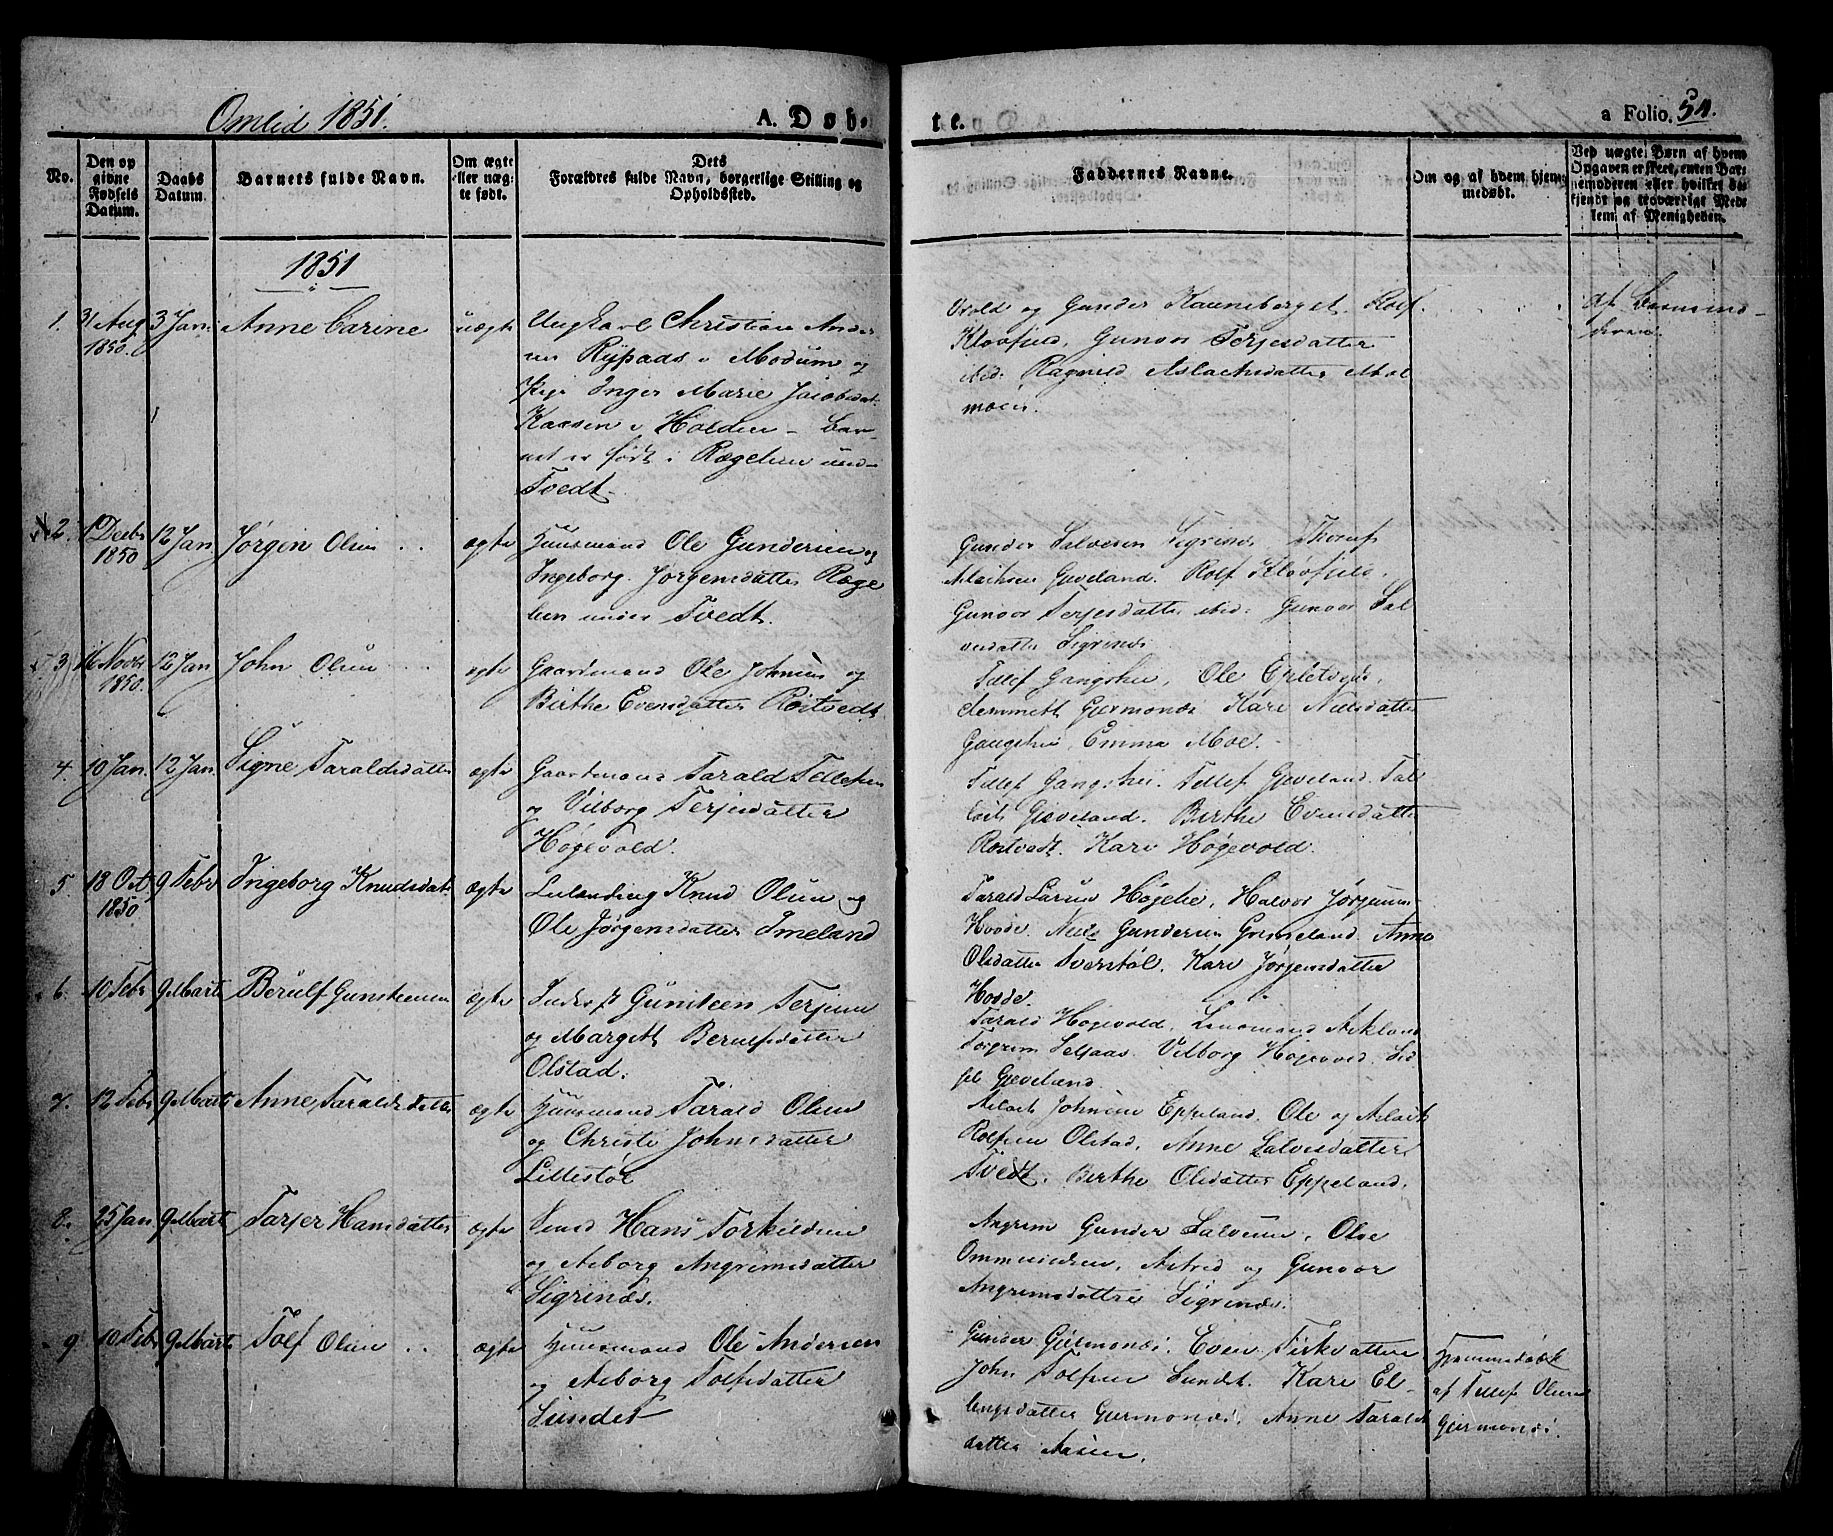 Omlid 1851.
A. Døb-
te.
a Folio. 54.
No.
Den op
givne
Fødsels
Datum.
Daabs
Datum.
Barnets fulde Navn.
Om ægte
eller uæg-
te født.
Dets
Forældres fulde Navn, borgerlige Stilling og
Opholdssted.
Faddernes Navne.
Om og af hvem hjem-
medøbt.
Ved uægte Børn af hvem
Opgaven er skeet, enten Bar-
nemoderen eller hvilket be-
kjendt og troværdigt Med-
lem af Menigheden.
1851
1. 31 Aug 1850. 3 Jan. Anne Carine uægte
Ungkarl Christian Ander-
sen i Modum og
Pige Inger Marie Jacobsdat.
i Holden - Bar-
net er født i Rægelien und-
Tvedt.
Gunder Kauneberget. Rolf
Kloofjeld, Gunvor Terjesdatter
ibid. Ragnild Aslachsdatter Mol-
moen.
af Barnemo-
deren.
2. 1 Decbr 1850 12 Jan. Jørgen Olsen .. ægte
Huusmand Ole Gundersen og
Ingeborg Jørgensdatter Ræge
lien under Tvedt.
Gunder Salvesen Sigrinæs,
Gjeveland. Rolf Kloofjeld,
Gunvor Terjesdatter ibid: Gunvor Sal
vesdatter Sigrinæs
3 16 Novbr 1850. 12 Jan John Olsen ægte
Gaardmand Ole Johnsen og
Birthe Evensdatter Rostvedt
Tellef Gangshei, Ole
Gjermonæs Kari Nielsdatter
Gangshei, Emma Moe.
4. 10 Jan. 12 Jan. Signe Taraldsdatter ægte
Gaardmand Tarald Tellefsen
og Vilborg Terjesdatter
Høgevold.
Tellef Gangshei. Tellef Gjeveland. Tal
Gjeveland. Birthe Evensdatter
Rostvedt. Kari Høgevold.
5. 18 Oct 1850 9 Febr Ingeborg Knudsdat. ægte
Knud Olsen og
Ole Jørgensdatter Imeland
Tarald Larsen Høgelie, Halvor Jørgensen
Hovde. Niels Gundersen Grimeland. Anne
Olsdatter Sverstøl. Kari Jørgensdatter
Hovde.
6. 10 Febr 9 Marts Berulf Gunsteensen ægte
Inderst Gunsteen Terjesen
og Margett Berulfsdatter
Olstad.
Tarald Høgevold. Lensmand Askland
Torgrim Selaas. Vilborg Høgevold. Sid
sel Gjeveland.
7. 12 Febr 9 Marts Anne Taraldsdatter ægte
Huusmand Tarald Olsen
og Christi Johnsdatter
Lillestøl
Aslach Johnsen Eppeland. Ole og Aslach
Rolfsen Olstad. Anne Salvesdatter
Tvedt. Birthe Olsdatter Eppeland.
8. 25 Jan. 9 Marts Tarjer Hansdatter ægte
Hans Torkildsen
og Asborg Angrimsdatter
Sigrinæs.
Angrim Gunder Salvesen, Olve
Ommundsen, Astrid og Gunvor
Angrimsdattre Sigrinæs.
9. 10 Febr 9 Marts Tolf Olsen .. ægte
Huusmand Ole Andersen
og Asborg Tolfsdatter
Sundet
Gunder Gjermonæs. Even
John Tolfsen Sundet. Kari El-
lingsdatter Gjermonæs. Anne Tarald
datter Aasen.
Hjemmedøbt
af Tellef Olsen
Gjermonæs.